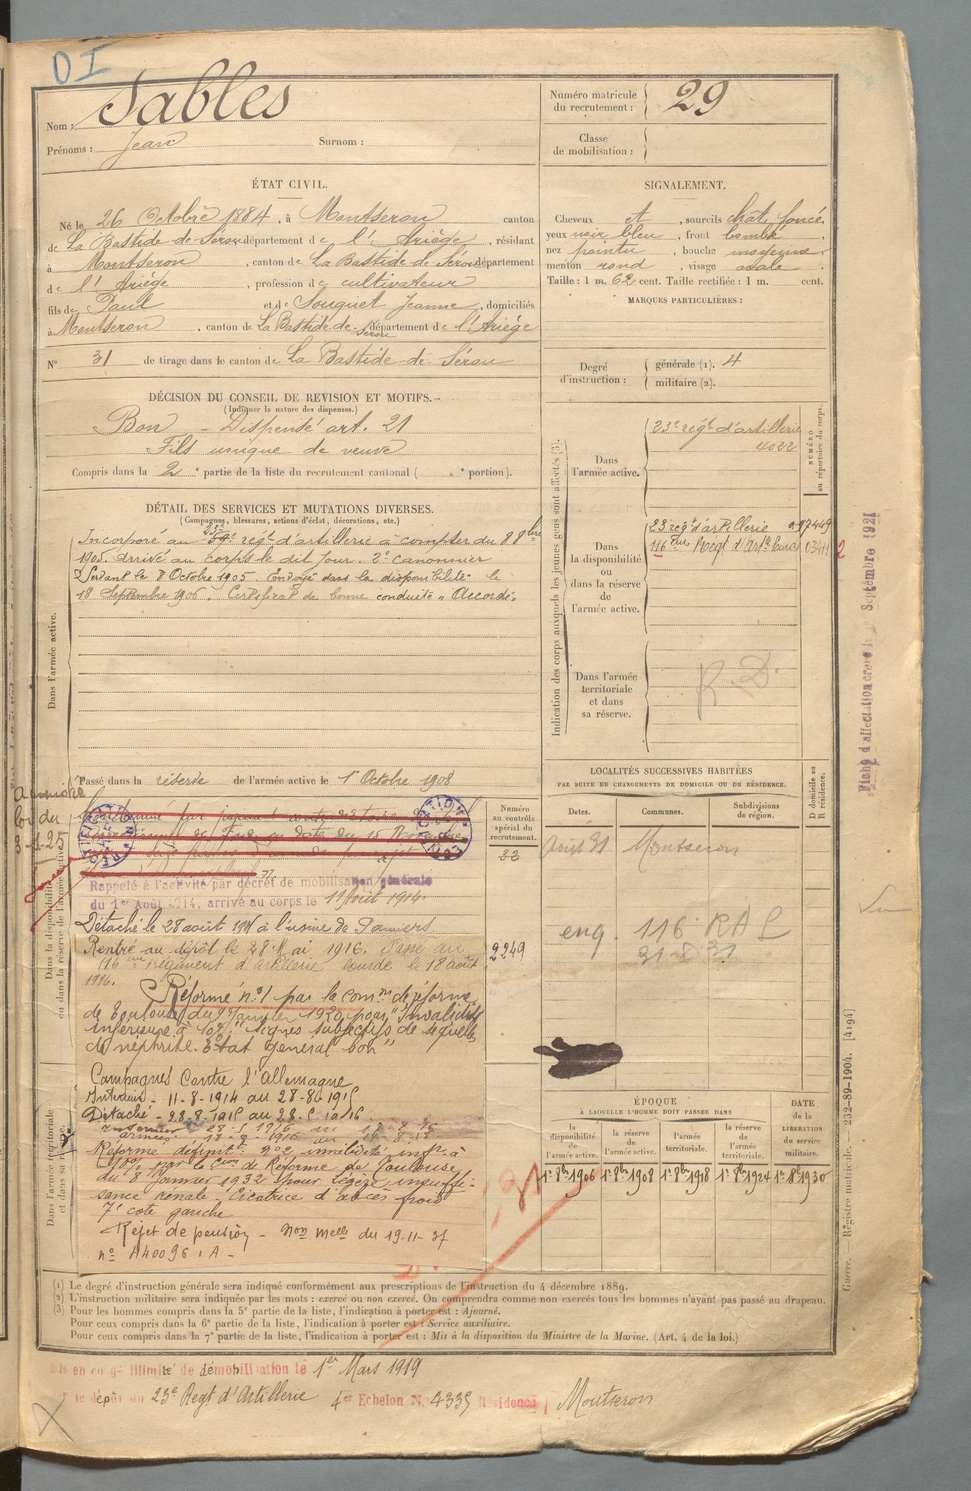 DI
Nom : Sables
Prénoms : Jean Surnom :
Numéro matricule
du recrutement : 29
Classe
de mobilisation :
ÉTAT CIVIL.
Né le 26 Octobre 1884, à Montseron canton
de La Bastide-de-Sérou département de l'Ariège, résidant
à Montseron, canton de La Bastide de Sérou département
de l'Ariège, profession de cultivateur
fils de Paul et de Souquet Jeanne, domiciliés
à Montseron, canton de La Bastide-de-Sérou département de l'Ariège
N° 31 de tirage dans le canton de La Bastide-de-Sérou
SIGNALEMENT.
Cheveux et, sourcils chat. foncé
yeux noir bleu, front bombé,
nez pointu, bouche moyenne
menton rond, visage ovale.
Taille : 1 m. 62 cent. Taille rectifiée : 1 m. cent.
MARQUES PARTICULIÈRES :
Degré
d'instruction :
générale (1). 4
militaire (2).
DÉCISION DU CONSEIL DE REVISION ET MOTIFS.
(Indiquer la nature des dispenses.)
Bon - Dispensé art. 21
Fils unique de veuve
Compris dans la 2e partie de la liste du recrutement cantonal ( e portion).
DÉTAIL DES SERVICES ET MUTATIONS DIVERSES.
(Campagnes, blessures, actions d'éclat, décorations, etc.)
Dans l'armée active.
23e
Incorporé au régt d'artillerie à compter du 8 8bre
1905. arrivé au corps le dit jour. 2e canonnier
Servant le 8 Octobre 1905. Envoyé dans la disponibilité le
18 Septembre 1906. Certificat de bonne conduite "Accordé"
Passé dans la réserve de l'armée active le 1er Octobre 1908
Indication des corps auxquels les jeunes gens sont affectés (3).
NUMÉRO
au répertoire du corps.
Dans
l'armée active.
23e régt d'artillerie
4022
Dans
la disponibilité
ou
dans la réserve
de
l'armée active.
23 régt d'artillerie
116 Régt d'Artie lourde
Dans l'armée
territoriale
et dans
sa réserve.
R.D.
Fiche d'affectation créée le Septembre 1921
Amnistié
loi du
3-1-25
Dans la disponibilité
ou dans la réserve de l'armée active.
Rappelé à l'activité par décret de mobilisation générale
du 1er Août 1914, arrivé au corps le 11 Août 1914.
Détaché le 28 août 1915 à l'usine de Pamiers
Rentré au dépôt le 28 Mai 1916. Passé au
116ème régiment d'artillerie lourde le 18 août
1916.
Réformé n°1 par la comon de réforme
de Toulouse du Janvier 1920 pour "Invalidité
inférieure à 10% signes subjectifs de séquelles
de néphrite. Etat général bon"
Campagnes Contre l'allemagne
Intérieur - 11-8-1914 au 28-8-1915
Détaché - 28-8-1915 au 28-5-1916.
Réforme définitt n°2 invalidité infre à
10% par la Con de Réforme de Toulouse
du 8 Janvier 1932 pour Légère insuffi-
sance rénale. Cicatrice d'abcès froid
7e côte gauche
Rejet de pension - Non melle du 19-11-37
n° A40096.A -
Dans l'armée territoriale
et dans sa réserve.
Numéro
au contrôle
spécial du
recrutement.
32
2249
LOCALITÉS SUCCESSIVES HABITÉES
PAR SUITE DE CHANGEMENTS DE DOMICILE OU DE RÉSIDENCE.
Dates. Communes. Subdivisions
de région.
D domicile ou
R résidence.
Août 31 Montseron
enq. 116 RAL
31-8-31
ÉPOQUE
À LAQUELLE L'HOMME DOIT PASSER DANS
la
disponibilité
de
l'armée active.
la réserve
de
l'armée active.
l'armée
territoriale.
la réserve
de
l'armée
territoriale.
DATE
de la
LIBÉRATION
du service
militaire.
1er 8bre 1906 1er 8bre 1908 1er 8bre 1918 1er 8bre 1924 1er 8bre 1930
(1) Le degré d'instruction générale sera indiqué conformément aux prescriptions de l'instruction du 4 décembre 1889.
(2) L'instruction militaire sera indiquée par les mots : exercé ou non exercé. On comprendra comme non exercés tous les hommes n'ayant pas passé au drapeau.
(3) Pour les hommes compris dans la 5e partie de la liste, l'indication à porter est : Ajourné.
Pour ceux compris dans la 6e partie de la liste, l'indication à porter est : Service auxiliaire.
Pour ceux compris dans la 7e partie de la liste, l'indication à porter est : Mis à la disposition du Ministre de la Marine. (Art. 4 de la loi.)
Guerre. — Registre matricule. — 232-89-1904. [4194]
Mis en congé illimité de démobilisation le 1er Mars 1919
dépôt du 23e Regt d'Artillerie 4er Echelon N. 4335 Résidence Montseron